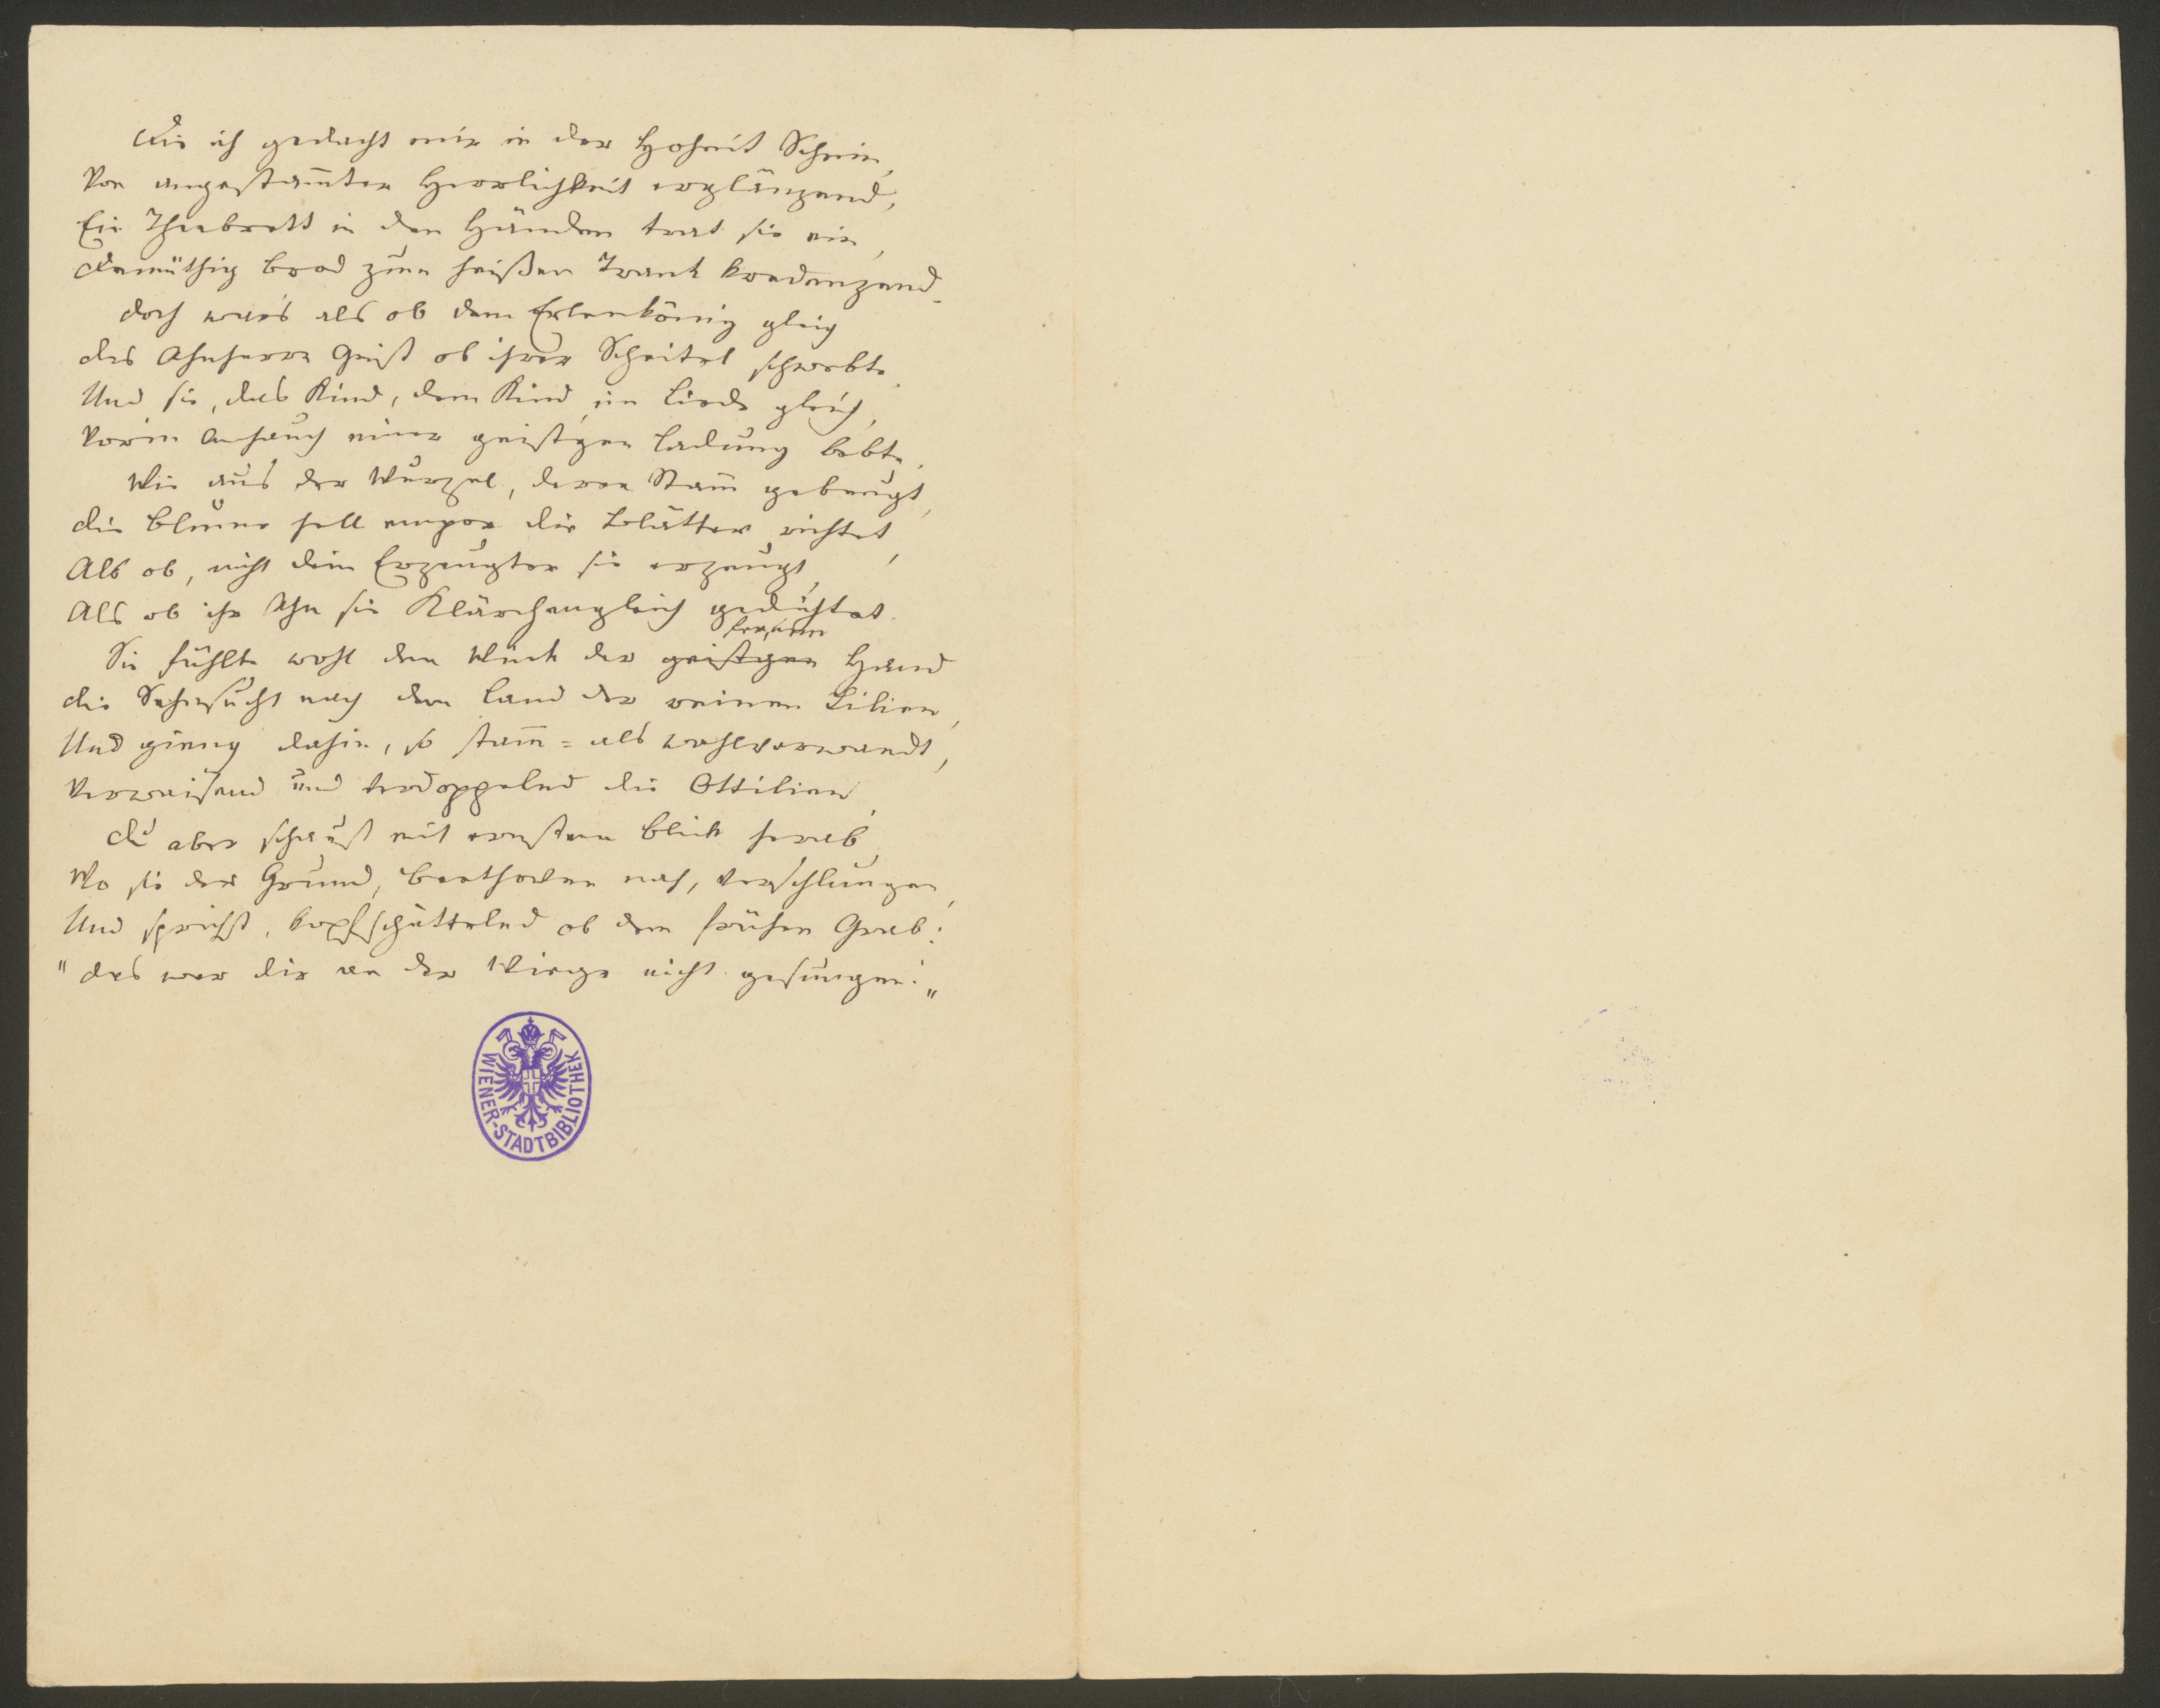 Die ich gedacht mir in der Hoheit Schein,
Von angestam̅ter Herrlichkeit erglänzend,
Ein Theebrett in den Händen trat sie ein,
Demüthig Brod zum heißen Trank kredenzend.
Doch war's als ob dem Erlenkönig gleich
Des Ahnherrn Geist ob ihrer Scheitel schwebte,
Und sie, das Kind, dem Kind im Liede gleich,
Vor'm Anhauch einer geist'gen Ladung bebte.
Wie aus der Wurzel, deren Stam̅ gebeugt,
Die Blume hell empor die Blätter richtet,
Als ob, nicht dein Erzeugter sie erzeugt,
Als ob ihr Ahn sie Klärchengleich gedichtet.
fernen
Sie fühlte wohl den Wink der geist'gen Hand
Die Sehnsucht nach dem Land der reinen Lilien,
Und gieng dahin, so stam̅= als wahlverwandt,
Verwaisend und verdoppelnd die Ottilien.
Du aber schaust mit ernstem Blick herab,
Wo sie der Grund, Beethoven nah, verschlungen,
Und sprichst, kopfschüttelnd ob dem frühen Grab:
"Das war dir an der Wiege nicht gesungen!"
WIENER-STADTBIBLIOTHEK